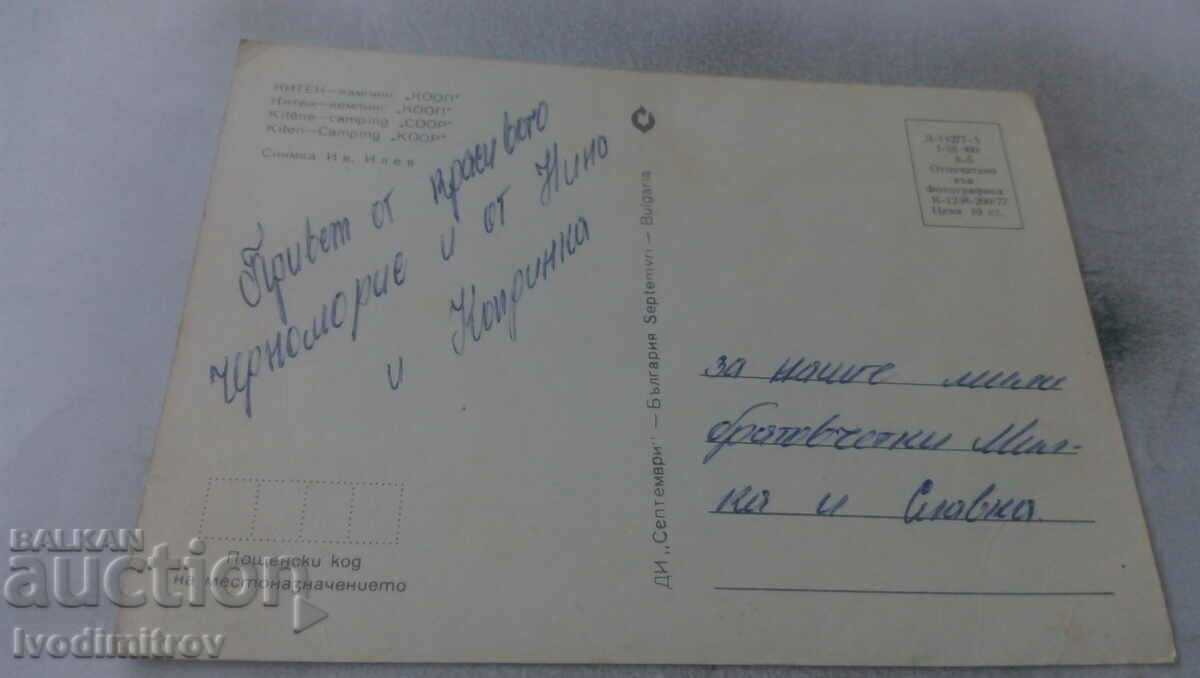 КИТЕН—къмпинг „КООП"
Китен—кемпинг „КООП"
Kitène—camping „COOP"
Kiten—Camping „KOOP"
Снимка Ив. Илев
Привет от красивото
черноморие и от Нина
и Копринка
Пощенски код
на местоназначението
ДИ „Септември" — България Septemvri — Bulgaria
Отпечатано
във
Фотографика
Цена 10 ст.
за наште мили
братовчетки Мил-
ка и Славка
BALKAN
auction
Ivodimitrov